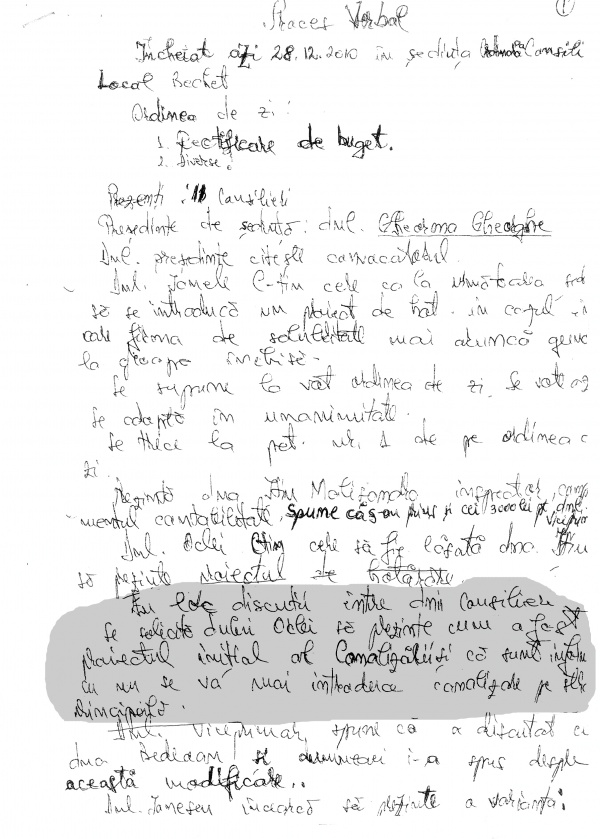 Proces Verbal
1
Încheiat azi 28.12.2010 în ședința Consili
Local Bechet
Ordinea de zi:
1. Rectificare de buget.
2. Diverse.
Prezenți: 11 Consilieri
Președinte de ședință: dnul. Gheorghe
Dnul. președinte citește convocatorul.
Dnul. cere ca la următoarea
să se introducă un proiect de hot. în cazul în
care firma de salubritate mai aruncă
la groapa închisă.
Se supune la vot ordinea de zi. Se
Se adoptă în unanimitate.
Se trece la pct. nr. 1 de pe ordinea
zi.
Prezintă dna. inspector
contabilitate. spune că s-au pus și cei 3000 lei pt. dnul.
Dnul. Oclei cere să fie lăsată dna.
să prezinte proiectul de hotărâre.
Au loc discuții între dnii Consilieri
Se solicită dului Oclei să prezinte cum a fost
proiectul inițial al Canalizării și că sunt
cu nu se va mai introduce canalizare pe
principală.
Dnul. Viceprimar, spune că a discutat cu
dna și i-a spus despre
această modificare..
Dnul. Ionescu încearcă să prezinte a